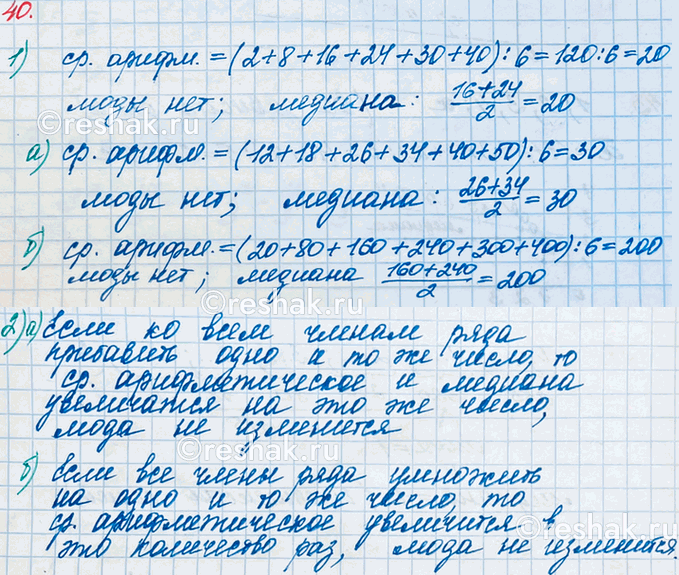 40.
1) ср. арифм. = (2+8+16+24+30+40) : 6 = 120 : 6 = 20
моды нет; медиана: (16+24)/2 = 20
а) ср. арифм. = (12+18+26+34+40+50) : 6 = 30
моды нет; медиана: (26+34)/2 = 30
б) ср. арифм. = (20+80+160+240+300+400) : 6 = 200
моды нет; медиана (160+240)/2 = 200
2) а) Если ко всем членам ряда
прибавить одно и то же число, то
ср. арифметическое и медиана
увеличатся на это же число,
мода не изменится
б) Если все члены ряда умножить
на одно и то же число, то
ср. арифметическое увеличится в
это количество раз, мода не изменится.
reshak.ru